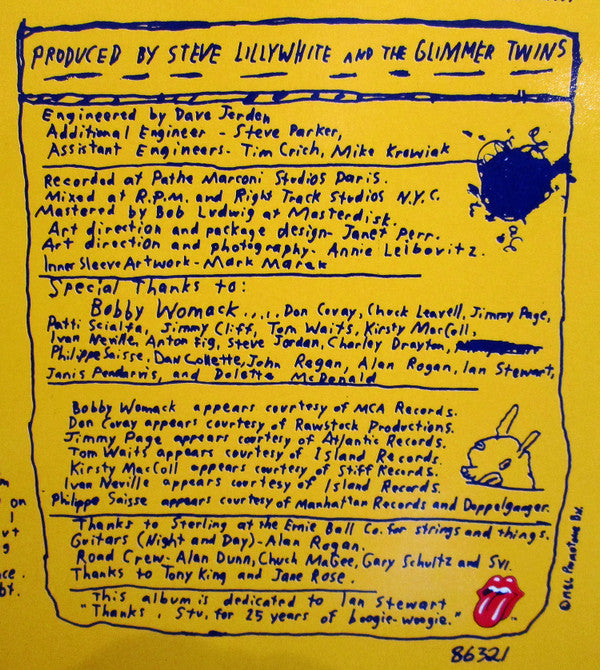 PRODUCED BY STEVE LILLYWHITE AND THE GLIMMER TWINS
Engineered by Dave Jerden
Additional Engineer - Steve Parker,
Assistant Engineers - Tim Crich, Mike Krowiak
Recorded at Pathe Marconi Studios Paris.
Mixed at R.P.M. and Right Track Studios N.Y.C.
Mastered by Bob Ludwig at Masterdisk.
Art direction and package design - Janet Perr.
Art direction and photography - Annie Leibovitz.
Inner Sleeve Artwork - Mark Marek
Special Thanks to:
Bobby Womack..... Don Covay, Chuck Leavell, Jimmy Page,
Patti Scialfa, Jimmy Cliff, Tom Waits, Kirsty MacColl,
Ivan Neville, Anton Fig, Steve Jordan, Charley Drayton,
Philippe Saisse, Dan Collette, John Regan, Alan Rogan, Ian Stewart,
Janis Pendarvis, and Dolette McDonald
Bobby Womack appears courtesy of MCA Records.
Don Covay appears courtesy of Rawstock Productions.
Jimmy Page appears courtesy of Atlantic Records.
Tom Waits appears courtesy of Island Records.
Kirsty MacColl appears courtesy of Stiff Records.
Ivan Neville appears courtesy of Island Records.
Philippe Saisse appears courtesy of Manhattan Records and Doppelganger.
Thanks to Sterling at the Ernie Ball Co. for strings and things.
Guitars (Night and Day) - Alan Rogan.
Road Crew - Alan Dunn, Chuck MaGee, Gary Schultz and Svi.
Thanks to Tony King and Jane Rose.
This album is dedicated to Ian Stewart
"Thanks, Stu. for 25 years of boogie-woogie."
TM
86321